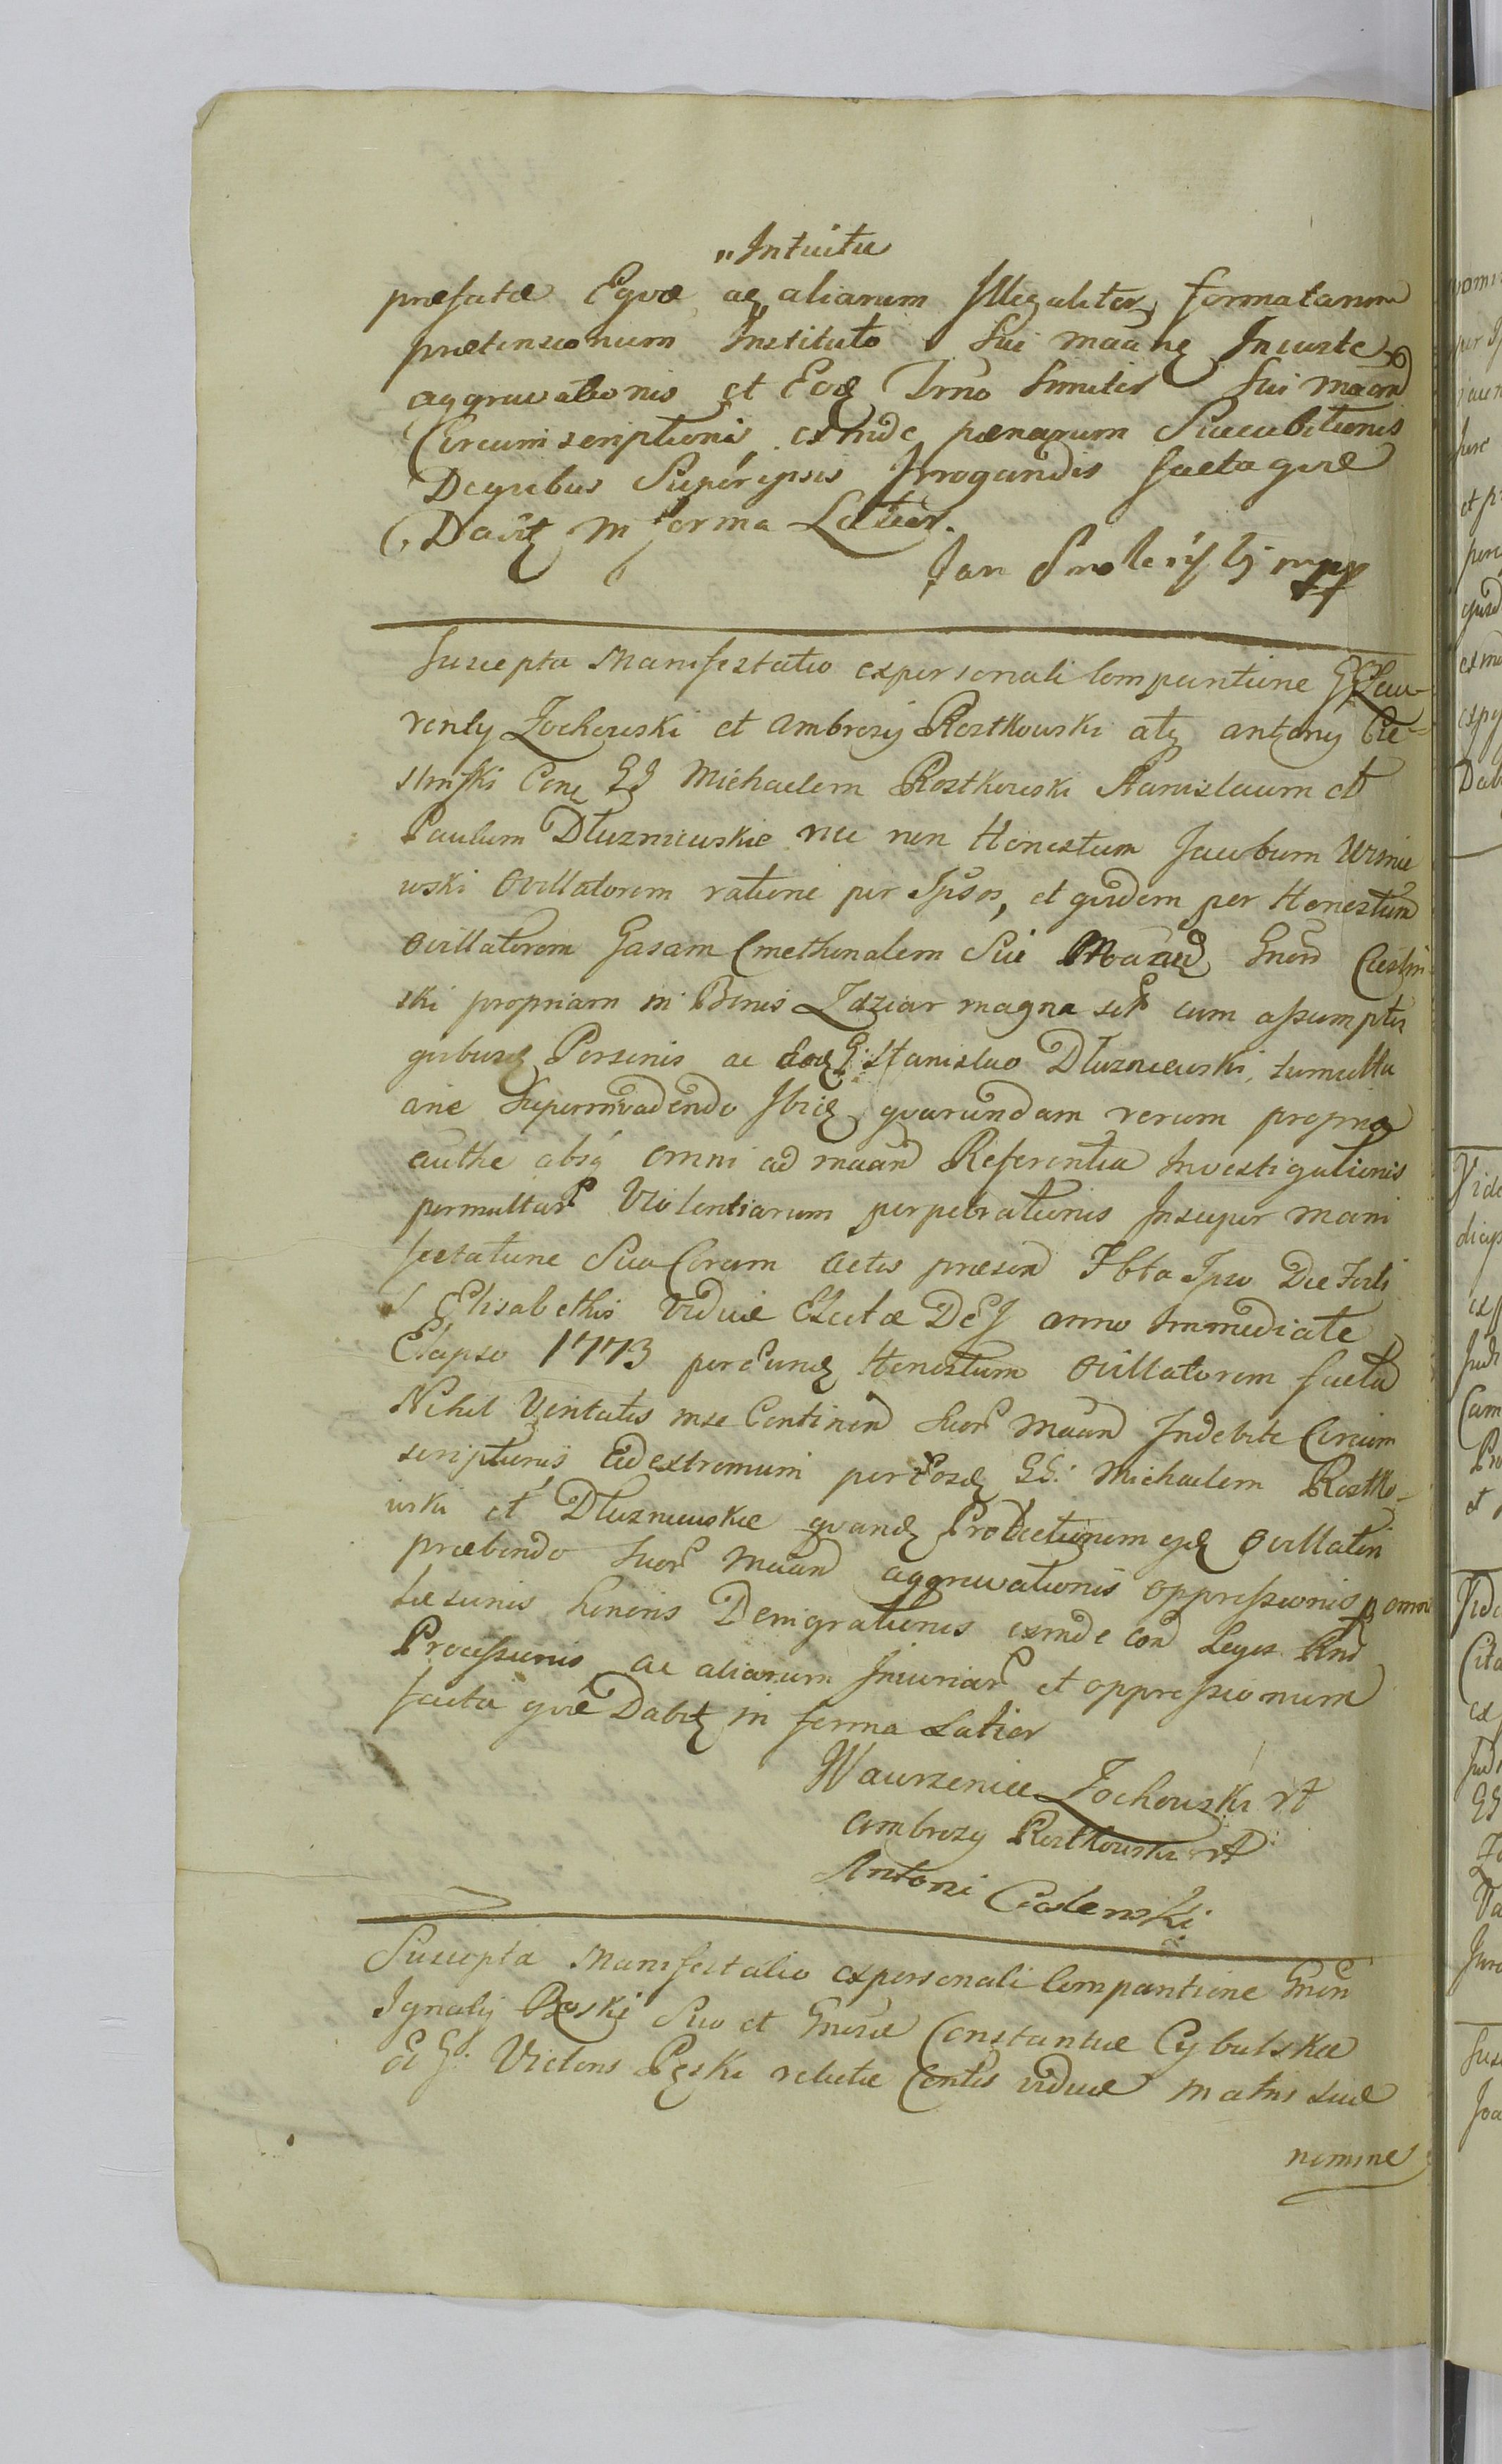 „Intuitu
præfatæ Eqvæ ac aliarum Illegaliter formatarum
prætensionum Instituto Sui maang Iniuste
aggravationis et Eoq Trno Similis Sui maan
Circumscriptionis exinde pænarum Succubitionis
Deqvibus Superipsis Irrogandis facta qvæ
Dabitz in forma Latior.
Jan mpp
Suscepta Manifestatio expersonali Comparitione GG Lau-
renty Zochowski et Ambrosij Rostkowski atq Antony Cie-
slinski Con GG Michaelem Rostkowski Stanislaum et
Paulum Dluzniewskie nec non Honestum Jacobum Wisnie
wski Ovillatorem ratione per Ipsos, et qvidem per Honestum
Ovillatorem Casam Cmethonalem Sui Gnosi Cieslin
ski propriam in Bonis Zdziar magna sit cum assumptis
qvibusq Personis ac eoq G. Stanislao Dluzniewski, tumultu
arie Superinvadendo Ibiq qvarundam rerum propria
authe absq omni ad maan Referentia Investigationis
permultar Violentiarum perpetrationis Insuper mani
festatione Sua Coram Actis præsen Ipso Die Festi
S Elisabethis Viduæ Electæ DEJ anno Immediate
Elapso 1773 per eunq Honestum Ovillatorem facta
Nihil Veritatis inse Continen Suor Maan Indebite Circum
scriptionis Adextremum per eosq GG. Michaelem Rostko-
wski et Dluzniewskie qvanq Protectionem ejq Ovillatori
præbendo Suor Maan aggravationis oppressionis p omni
Læsionis honoris Denigrationis exinde con Leges Rni
Processionis ac aliarum Iniuriar et oppressionum
facta qvæ Dabitz in forma Latior
Wawrzeniec Zochowski
Ambrozy Rostkowski
Antoni Cieslenski
Suscepta Manifestatio expersonali Comparitione Gnosi
Ignatij Pęski Suo et Gnosæ Constantiæ Cybulskæ
G. Victoris Pęski relictæ Contis viduæ matris suæ
nomine